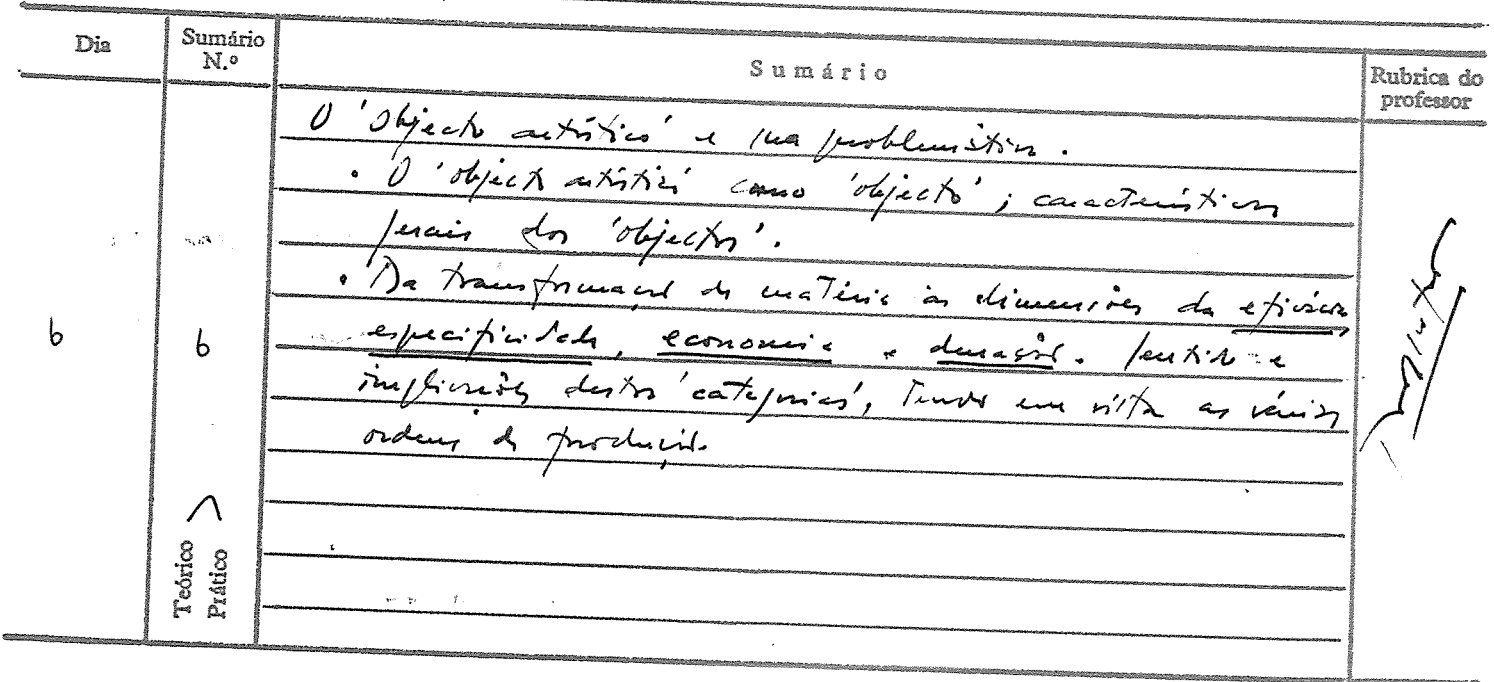 Dia
Sumário N.º
Sumário
Rubrica do professor
O 'objecto artístico' e sua problemática.
. O 'objecto artístico' como 'objecto'; características
gerais dos 'objectos'.
. Da transformação da matéria às dimensões da eficácia,
6
6
especificidade, economia e duração. Sentido e
implicações destas 'categorias', tendo em vista as várias
ordens de produção.
Teórico
Prático